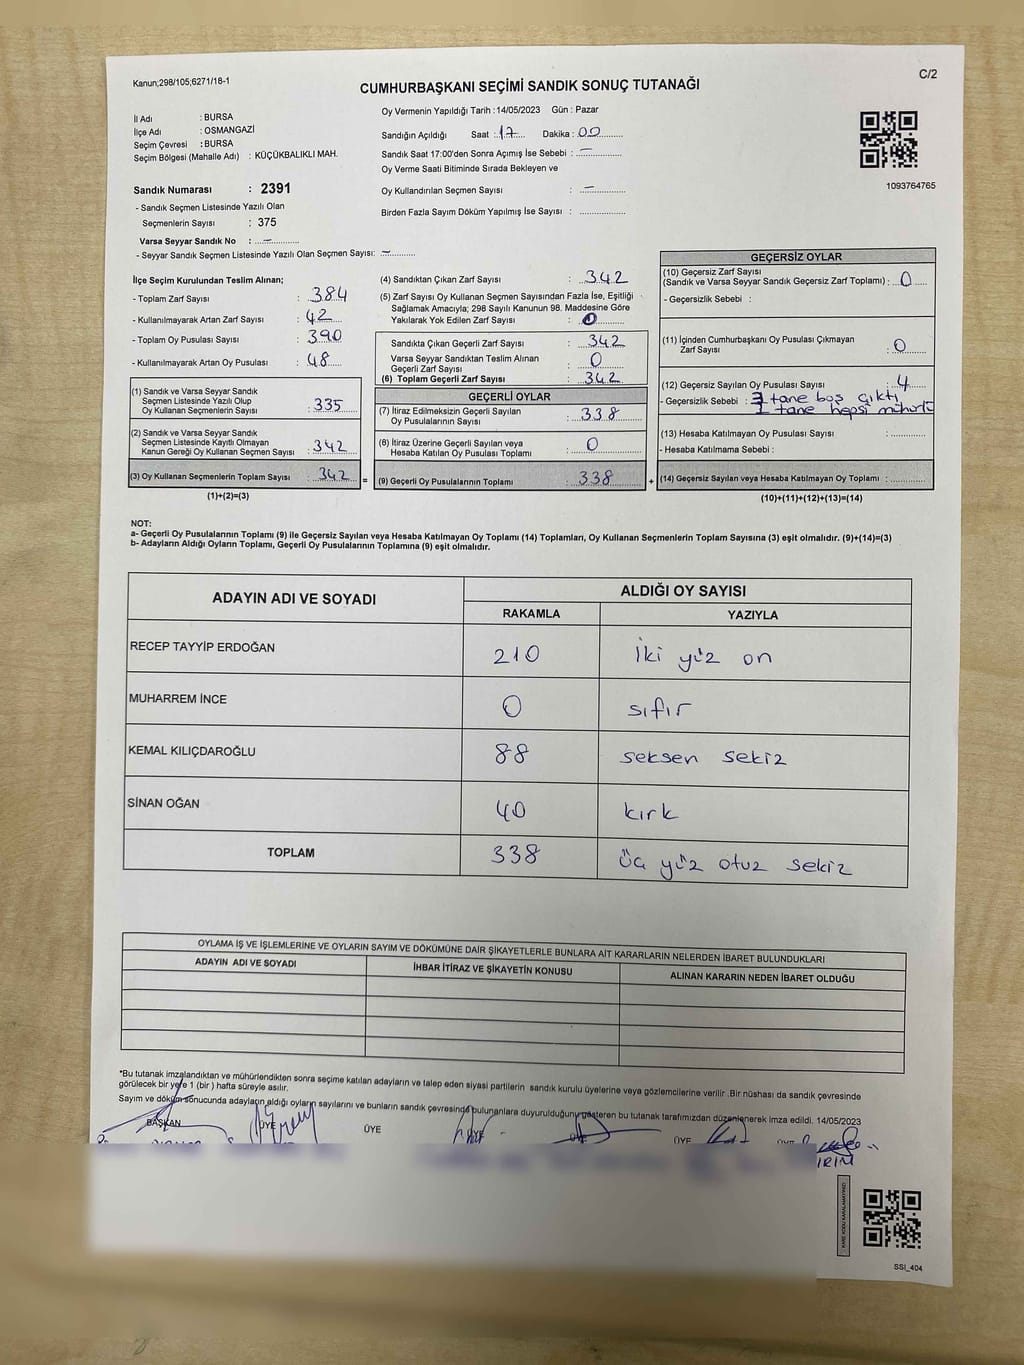 Kanun;298/105;6271/18-1
C/2
CUMHURBAŞKANI SEÇİMİ SANDIK SONUÇ TUTANAĞI
İl Adı : BURSA
İlçe Adı : OSMANGAZİ
Seçim Çevresi : BURSA
Seçim Bölgesi (Mahalle Adı) : KÜÇÜKBALIKLI MAH.
Sandık Numarası : 2391
- Sandık Seçmen Listesinde Yazılı Olan
Seçmenlerin Sayısı : 375
Varsa Seyyar Sandık No : –
- Seyyar Sandık Seçmen Listesinde Yazılı Olan Seçmen Sayısı: –
Oy Vermenin Yapıldığı Tarih : 14/05/2023 Gün : Pazar
Sandığın Açıldığı Saat : 17 Dakika : 00
Sandık Saat 17:00'den Sonra Açımış İse Sebebi : –
Oy Verme Saati Bitiminde Sırada Bekleyen ve
Oy Kullandırılan Seçmen Sayısı : –
Birden Fazla Sayım Döküm Yapılmış İse Sayısı :
1093764765
İlçe Seçim Kurulundan Teslim Alınan;
- Toplam Zarf Sayısı : 384
- Kullanılmayarak Artan Zarf Sayısı : 42
- Toplam Oy Pusulası Sayısı : 390
- Kullanılmayarak Artan Oy Pusulası : 48
(1) Sandık ve Varsa Seyyar Sandık
Seçmen Listesinde Yazılı Olup
Oy Kullanan Seçmenlerin Sayısı : 335
(2) Sandık ve Varsa Seyyar Sandık
Seçmen Listesinde Kayıtlı Olmayan
Kanun Gereği Oy Kullanan Seçmen Sayısı : 342
(3) Oy Kullanan Seçmenlerin Toplam Sayısı : 342
(1)+(2)=(3)
(4) Sandıktan Çıkan Zarf Sayısı : 342
(5) Zarf Sayısı Oy Kullanan Seçmen Sayısından Fazla İse, Eşitliği
Sağlamak Amacıyla; 298 Sayılı Kanunun 98. Maddesine Göre
Yakılarak Yok Edilen Zarf Sayısı : 0
Sandıkta Çıkan Geçerli Zarf Sayısı : 342
Varsa Seyyar Sandıktan Teslim Alınan
Geçerli Zarf Sayısı : 0
(6) Toplam Geçerli Zarf Sayısı : 342
GEÇERLİ OYLAR
(7) İtiraz Edilmeksizin Geçerli Sayılan
Oy Pusulalarının Sayısı : 338
(8) İtiraz Üzerine Geçerli Sayılan veya
Hesaba Katılan Oy Pusulası Toplamı : 0
= (9) Geçerli Oy Pusulalarının Toplamı : 338 +
GEÇERSİZ OYLAR
(10) Geçersiz Zarf Sayısı
(Sandık ve Varsa Seyyar Sandık Geçersiz Zarf Toplamı) : 0
- Geçersizlik Sebebi :
(11) İçinden Cumhurbaşkanı Oy Pusulası Çıkmayan
Zarf Sayısı : 0
(12) Geçersiz Sayılan Oy Pusulası Sayısı : 4
- Geçersizlik Sebebi : 3 tane boş çıktı
1 tane hepsi mühürlü
(13) Hesaba Katılmayan Oy Pusulası Sayısı :
- Hesaba Katılmama Sebebi :
(14) Geçersiz Sayılan veya Hesaba Katılmayan Oy Toplamı :
(10)+(11)+(12)+(13)=(14)
NOT:
a- Geçerli Oy Pusulalarının Toplamı (9) ile Geçersiz Sayılan veya Hesaba Katılmayan Oy Toplamı (14) Toplamları, Oy Kullanan Seçmenlerin Toplam Sayısına (3) eşit olmalıdır. (9)+(14)=(3)
b- Adayların Aldığı Oyların Toplamı, Geçerli Oy Pusulalarının Toplamına (9) eşit olmalıdır.
ADAYIN ADI VE SOYADI ALDIĞI OY SAYISI
RAKAMLA YAZIYLA
RECEP TAYYİP ERDOĞAN 210 iki yüz on
MUHARREM İNCE 0 sıfır
KEMAL KILIÇDAROĞLU 88 seksen sekiz
SİNAN OĞAN 40 kırk
TOPLAM 338 üç yüz otuz sekiz
OYLAMA İŞ VE İŞLEMLERİNE VE OYLARIN SAYIM VE DÖKÜMÜNE DAİR ŞİKAYETLERLE BUNLARA AİT KARARLARIN NELERDEN İBARET BULUNDUKLARI
ADAYIN ADI VE SOYADI İHBAR İTİRAZ VE ŞİKAYETİN KONUSU ALINAN KARARIN NEDEN İBARET OLDUĞU
*Bu tutanak imzalandıktan ve mühürlendikten sonra seçime katılan adayların ve talep eden siyasi partilerin sandık kurulu üyelerine veya gözlemcilerine verilir .Bir nüshası da sandık çevresinde
görülecek bir yere 1 (bir ) hafta süreyle asılır.
Sayım ve döküm sonucunda adayların aldığı oyların sayılarını ve bunların sandık çevresinde bulunanlara duyurulduğunu gösteren bu tutanak tarafımızdan düzenlenerek imza edildi. 14/05/2023
BAŞKAN ÜYE ÜYE ÜYE ÜYE ÜYE
KARE KODU KARALAMAYINIZ!
SSI_404